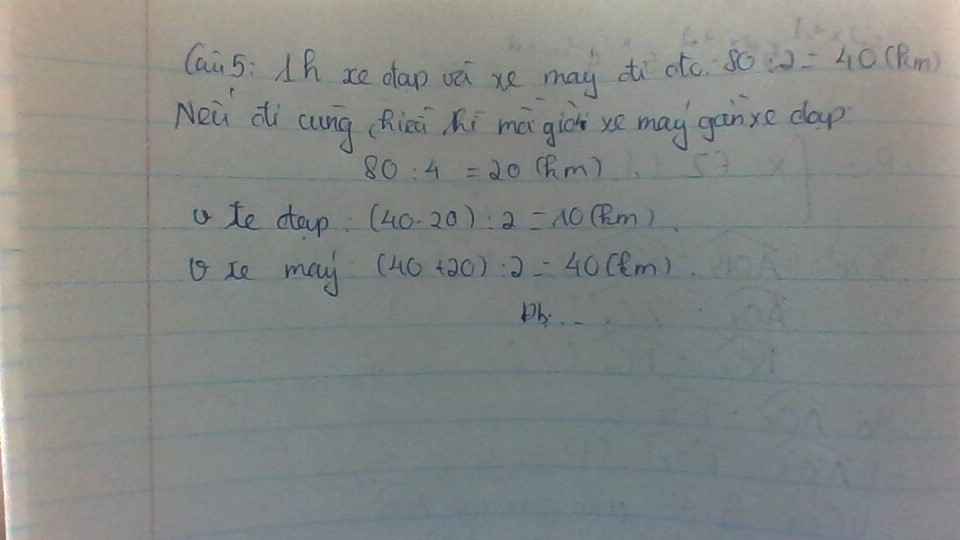 Câu 5: 1h xe đạp và xe máy đi đc. 80 : 2 = 40 (km)
Nếu đi cùng chiều thì mỗi giờ xe máy gần xe đạp
80 : 4 = 20 (km)
v Xe đạp : (40 - 20) : 2 = 10 (km).
v xe máy (40 + 20) : 2 = 40 (km).
Đs. . .